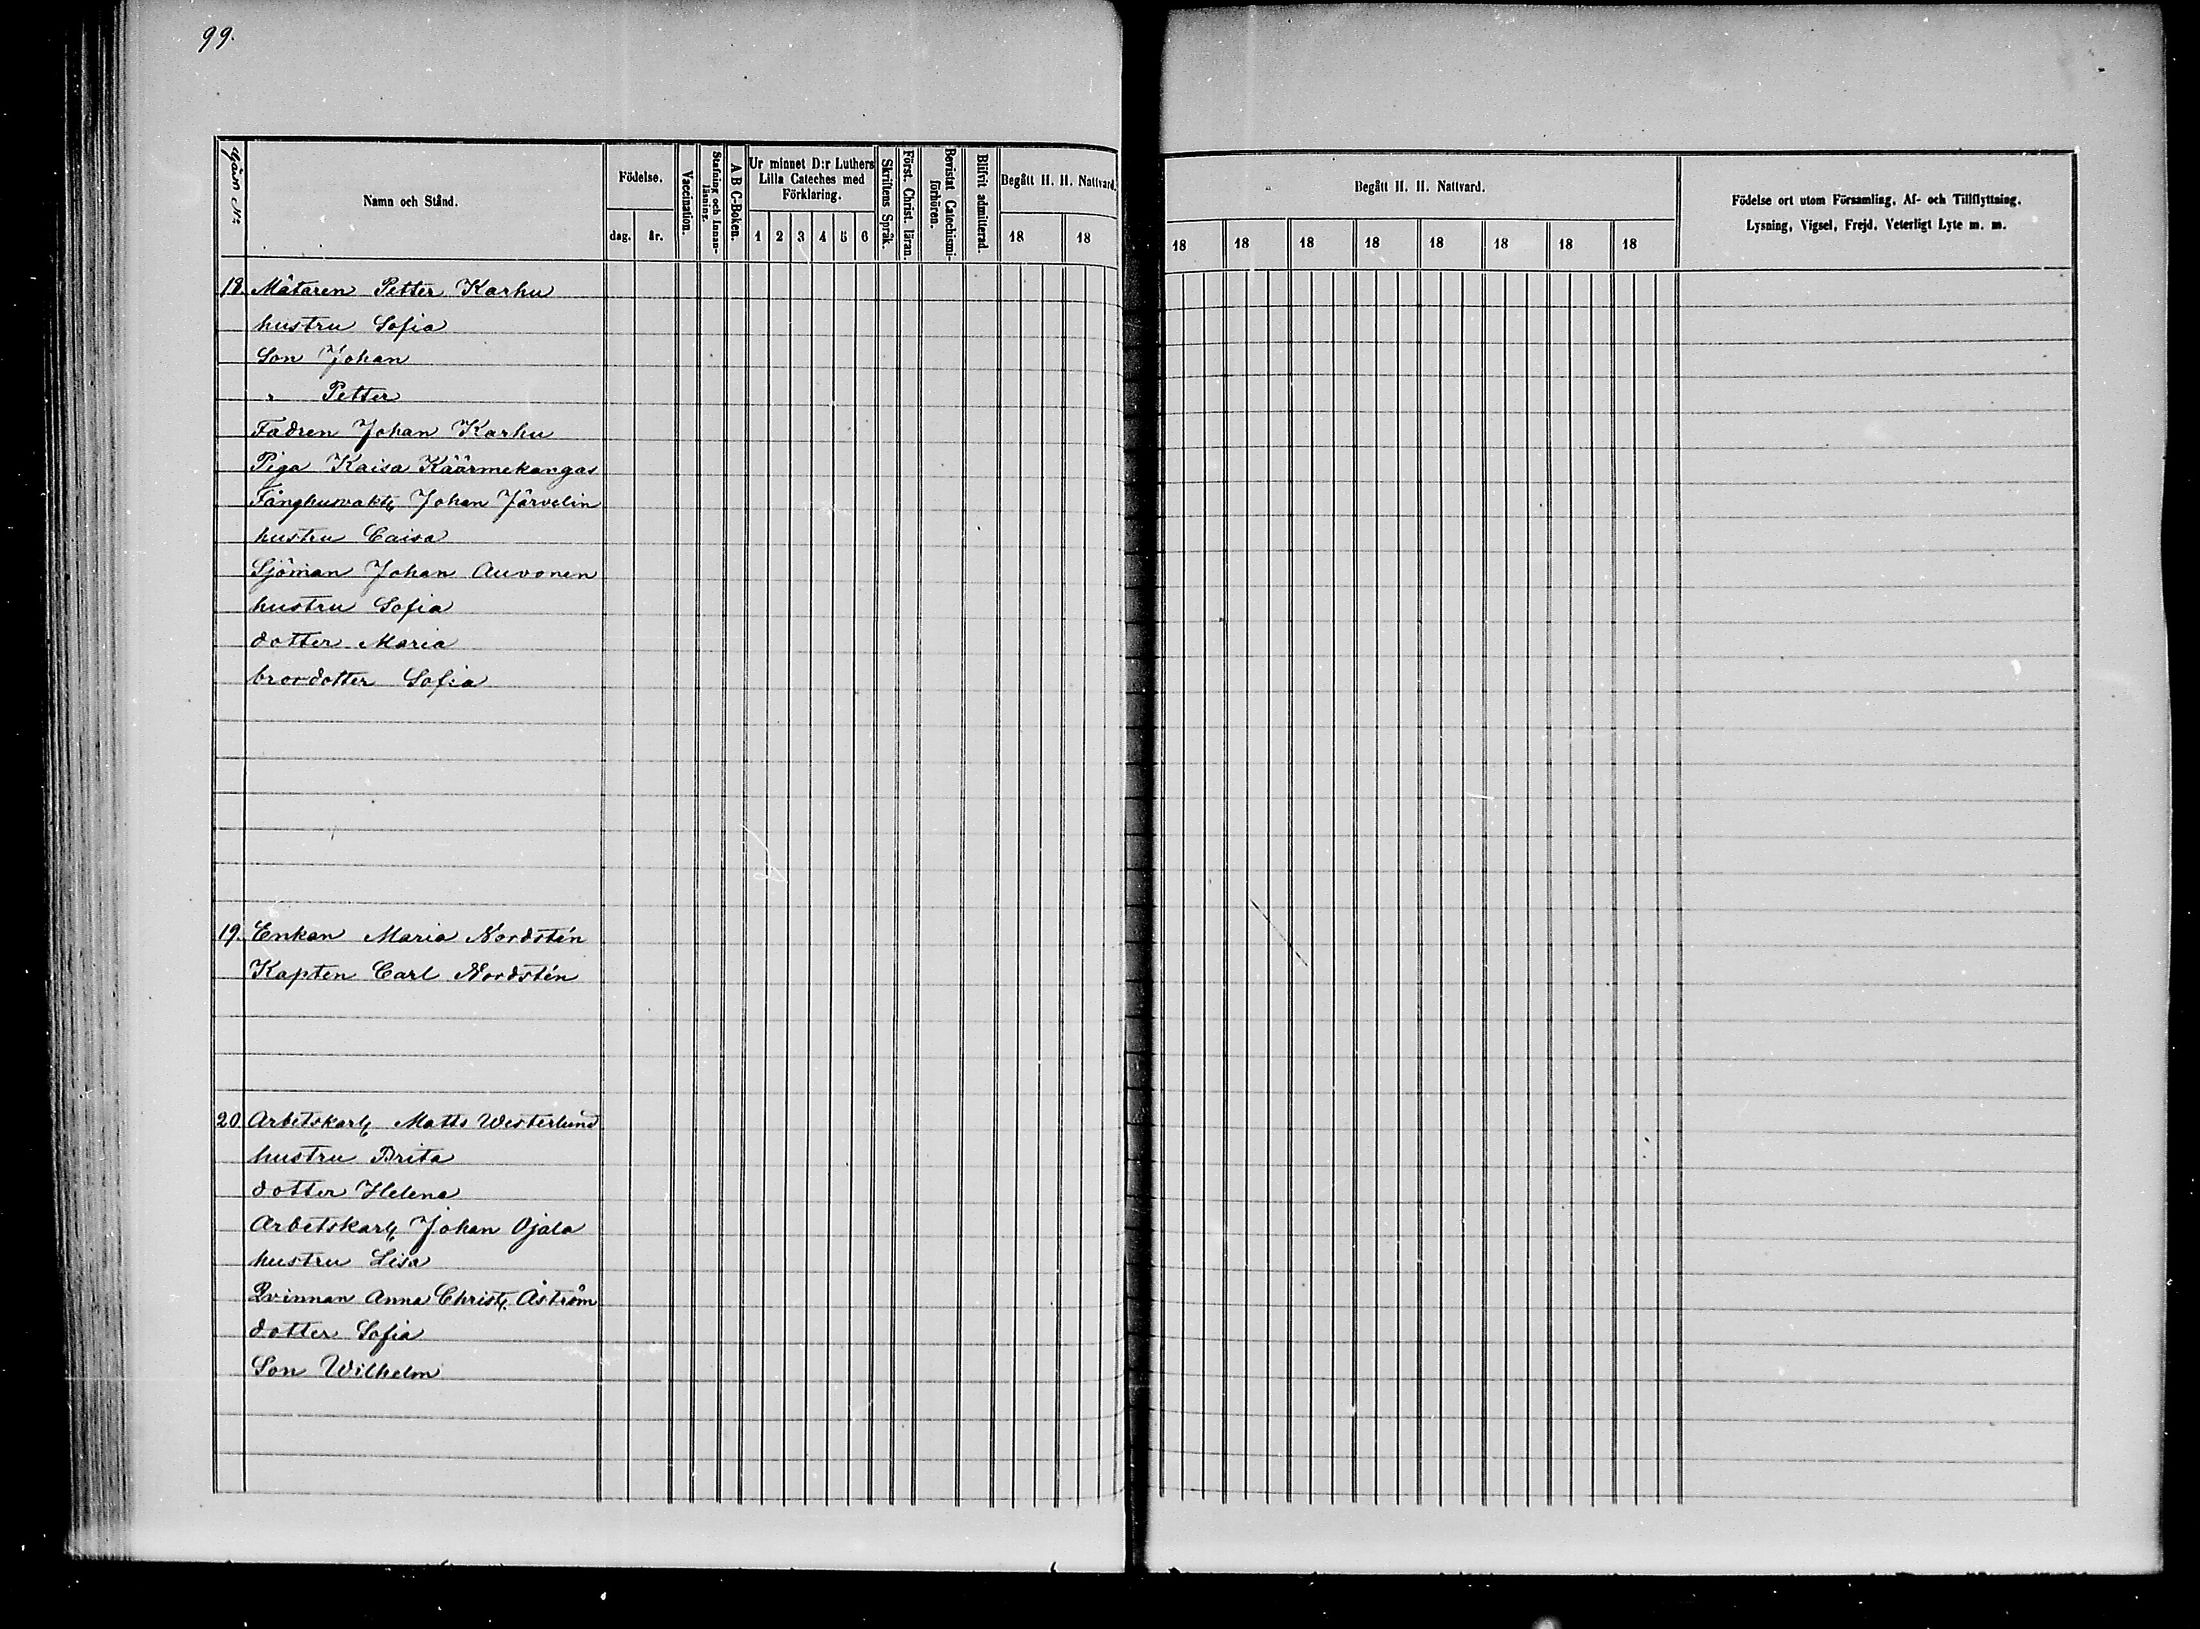 99.
Gård No
Namn och Stånd.
Födelse.
dag.
år.
Vaccination.
Stafning och Innan-
läsning.
A B C-Boken.
Ur minnet D:r Luthers
Lilla Cateches med
Förklaring.
1 2 3 4 5 6
Skriftens Språk.
Först. Christ. läran.
Bevistat Catechismi-
förhören.
Blifvit admitterad.
Begått H. H. Nattvard.
18 18
Begått H. H. Nattvard.
18 18 18 18 18 18 18 18
Födelse ort utom Församling, Af- och Tillflyttning.
Lysning, Vigsel, Frejd, Veterligt Lyte m. m.
18. Mätaren Petter Karhu
hustru Sofia
Son Johan
" Petter
Fadren Johan Karhu
Piga Kaisa Käärmekangas
Fånghusvakt. Johan Järvelin
hustru Caisa
Sjöman Johan Auvonen
hustru Sofia
dotter Maria
brordotter Sofia
19. Enkan Maria Nordstén
Kapten Carl Nordstén
20 Arbetskarl. Matts Westerlund
hustru Brita
dotter Helena
Arbetskarl. Johan Ojala
hustru Lisa
Qvinnan Anna Christ. Åström
dotter Sofia
Son Wilhelm